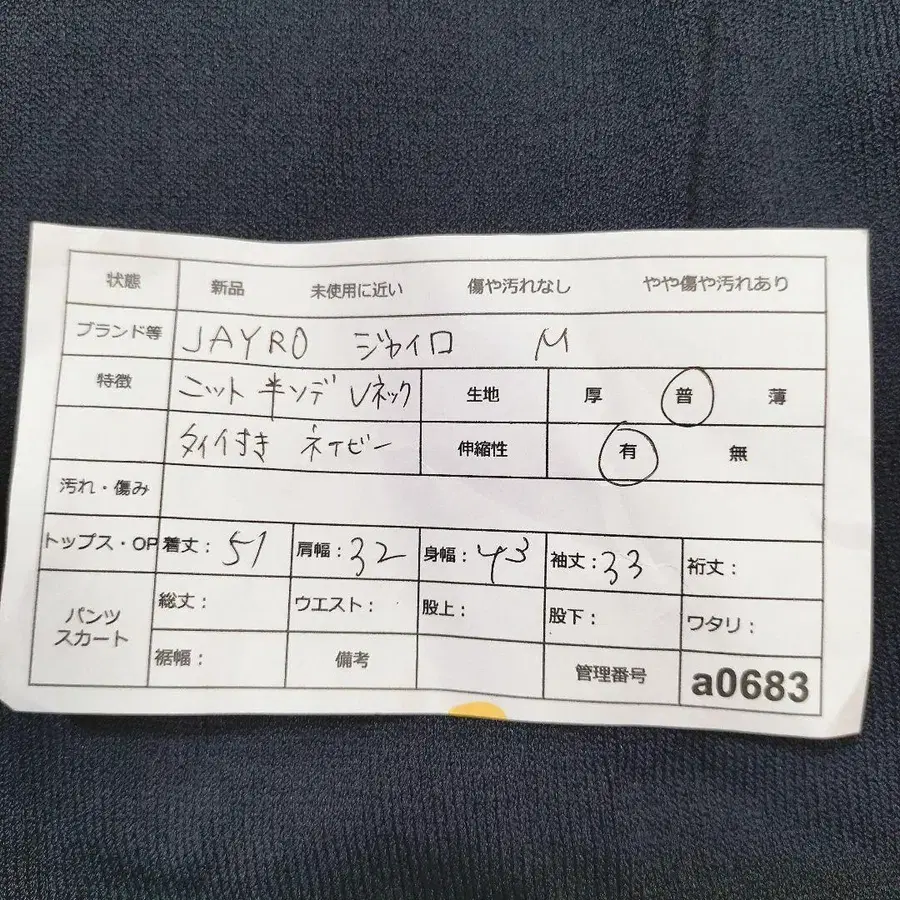 状態 新品 未使用に近い 傷や汚れなし やや傷や汚れあり
ブランド等 JAYRO ジャイロ M
特徴 ニット 半ソデ Vネック 生地 厚 普 薄
タイ付き ネイビー 伸縮性 有 無
汚れ・傷み
トップス・OP 着丈：51 肩幅：32 身幅：43 袖丈：33 裄丈：
パンツ スカート 総丈： ウエスト： 股上： 股下： ワタリ：
裾幅： 備考 管理番号 a0683